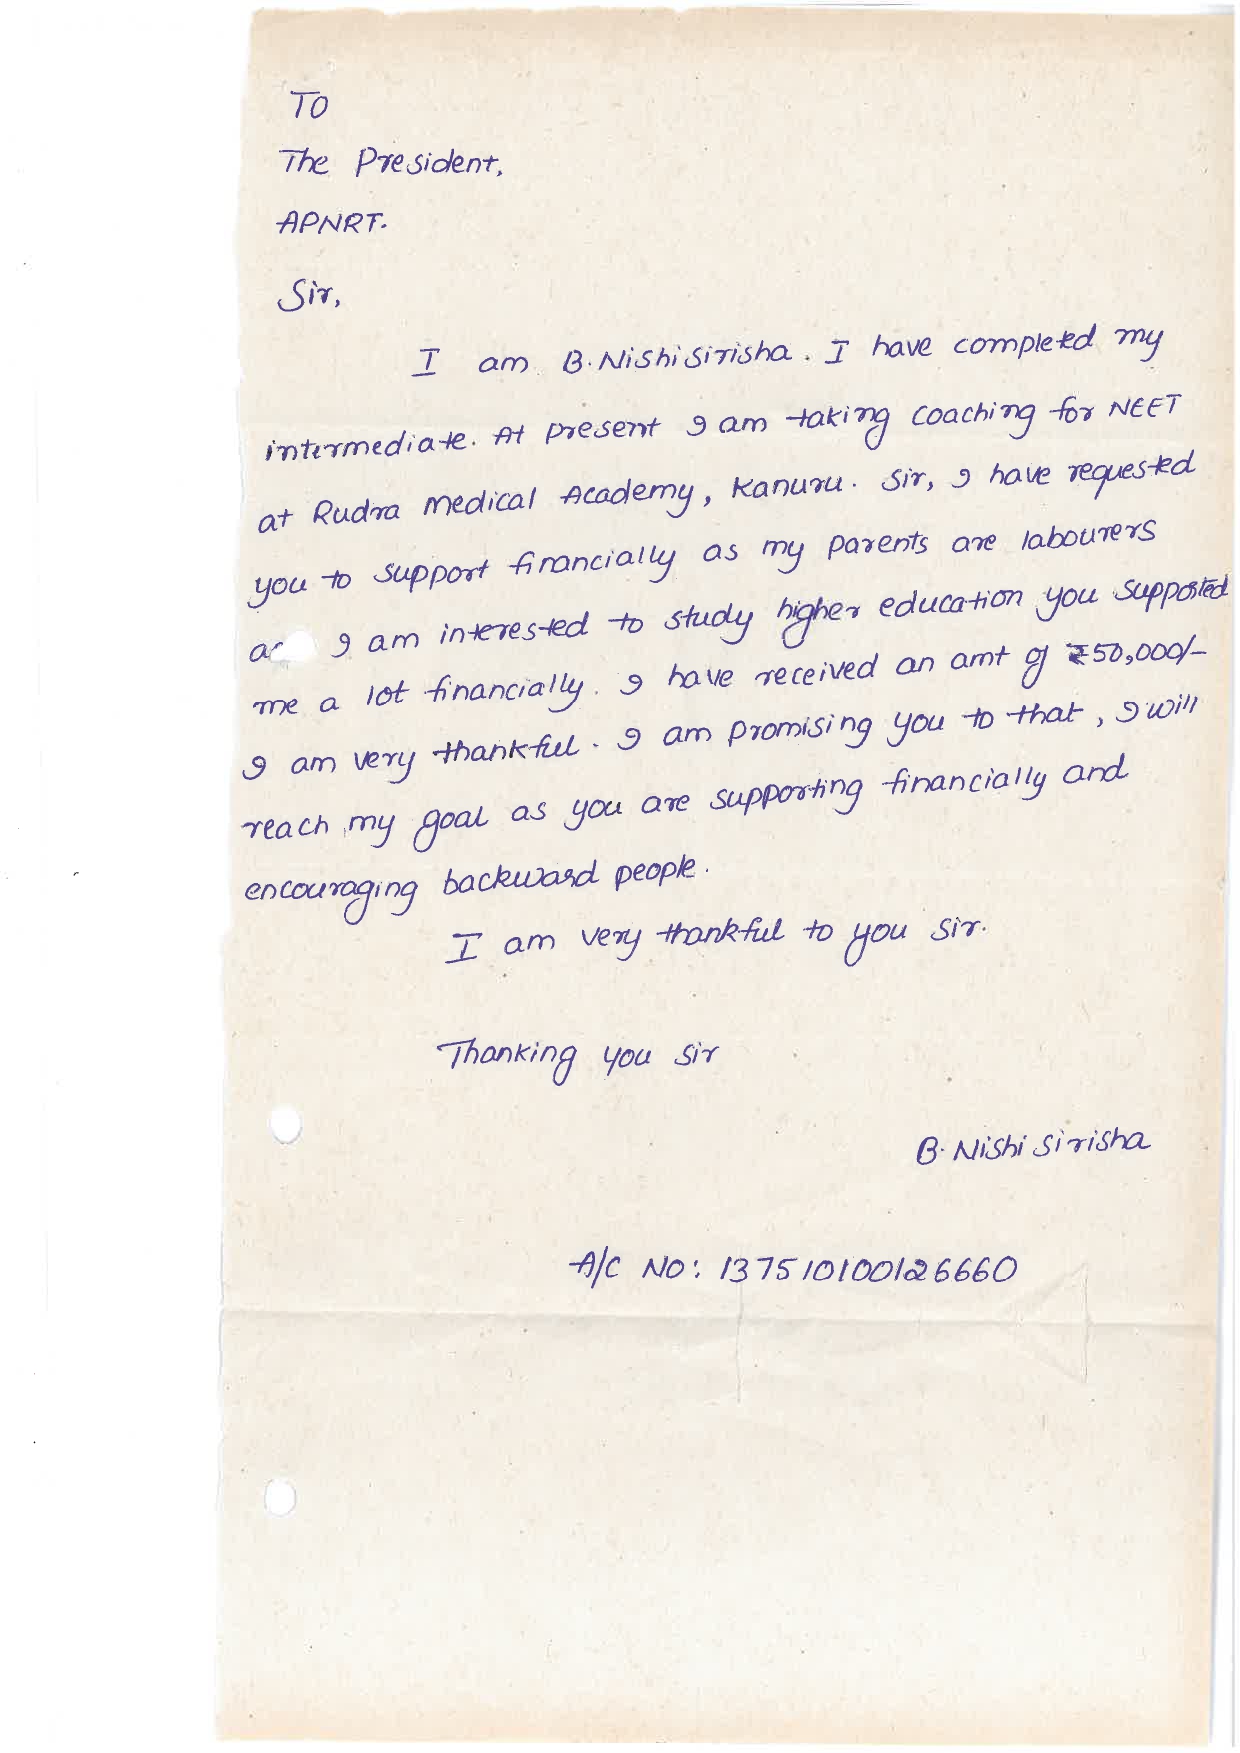 TO
The President,
APNRT.
Sir,
I am B. Nishi Sirisha. I have completed my
intermediate. At present I am taking coaching for NEET
at Rudra Medical Academy, Kanuru. Sir, I have requested
you to support financially as my parents are labourers
I am interested to study higher education you supported
me a lot financially. I have received an amt of ₹50,000/-
I am very thankful. I am promising you to that, I will
reach my goal as you are supporting financially and
encouraging backward people.
I am very thankful to you sir.
Thanking you sir
B. Nishi Sirisha
A/C NO: 137510100126660